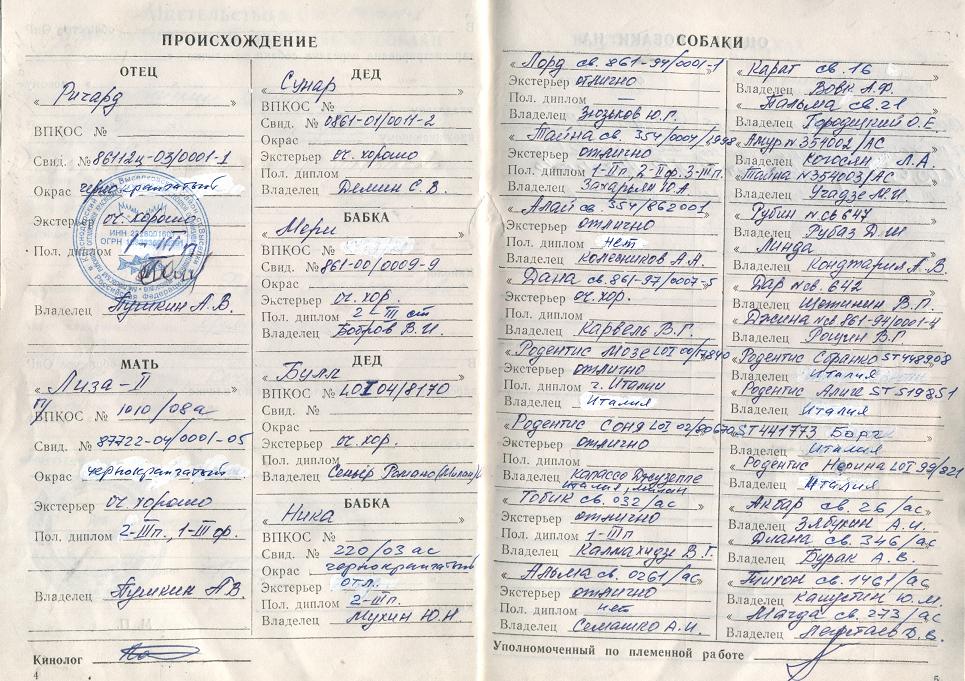 ПРОИСХОЖДЕНИЕ
ОТЕЦ
« Ричард »
ВПКОС №
Свид. № 861124-03/0001-1
Окрас чернокрапчатый
Экстерьер оч. хорошо
Пол. диплом 1-III п
Владелец Пушкин А.В.
МАТЬ
« Лиза-II »
ВПКОС № 1010/08а
Свид. № 87722-04/0001-05
Окрас чернокрапчатый
Экстерьер оч хорошо
Пол. диплом 2-IIIп., 1-IIIф.
Владелец Пушкин А.В.
Кинолог
4
ДЕД
« Сунар »
ВПКОС №
Свид. № 0861-01/0011-2
Окрас
Экстерьер оч. хорошо
Пол. диплом
Владелец Демин С.В.
БАБКА
« Мери »
ВПКОС №
Свид. № 861-00/0009-9
Окрас
Экстерьер оч. хор.
Пол. диплом 2-III ст
Владелец Бобров В.И.
ДЕД
« Булл »
ВПКОС № LOI04/8170
Свид. №
Окрас
Экстерьер оч. хор.
Пол. диплом
Владелец Сеньёр Романо (Милан)
БАБКА
« Ника »
ВПКОС №
Свид. № 220/03 ас
Окрас чернокрапчатый
Экстерьер отл.
Пол. диплом 2-IIIп.
Владелец Мухин Ю.Н.
СОБАКИ
« Лорд св. 861-94/0001-1
Экстерьер отлично
Пол. диплом —
Владелец Зюзьков Ю.Г.
« Тайна св. 354/0007/1998
Экстерьер отлично
Пол. диплом 1-IIп, 2-IIф. 3-IIIп.
Владелец Захарьян Ю.А
« Алай св 354/862001
Экстерьер отлично
Пол. диплом нет
Владелец Колесников А.А.
« Дана св. 861-97/0007-5
Экстерьер оч. хор.
Пол. диплом
Владелец Карвель В.Г.
« Родентис Мозе LOI 00/17840
Экстерьер отлично
Пол. диплом ч. Италии
Владелец Италия
« Родентис Соня LOI 02/90670
Экстерьер отлично
Пол. диплом
Владелец Карассо Джузеппе
Италия, Милан
« Тобик св. 032/ас »
Экстерьер отлично
Пол. диплом 1-IIIп
Владелец Калмахидзе В.Г.
« Альма св. 0261/ас »
Экстерьер отлично
Пол. диплом нет
Владелец Семашко А.И.
Уполномоченный по племенной работе
« Карат св. 16 »
Владелец Вовк А.Ф.
« Пальма св. 21
Владелец Городицкий О.Е.
« Амур № 354002/АС
Владелец Кочосян Л.А.
« Тайна № 354003/АС
Владелец Учадзе М.И.
« Рубин № св 647
Владелец Рубаз Д.Ш
« Линда »
Владелец Кондтария А.В.
« Дар № св. 642
Владелец Щетинин В.П.
« Джина № св 861-94/0001-4
Владелец Рощин В.Г
« Родентис Софанко ST448908
Владелец Италия
« Родентис Алиш ST519851
Владелец Италия
« ST441773 Борг
Владелец Италия
« Родентис Норина LOI 99/821
Владелец Италия
« Акбар св. 26/ас
Владелец Зябухин А.И.
« Диана св. 346/ас
Владелец Бурак А.В.
« Тихон св. 1461/ас
Владелец Капустин Ю.М.
« Магда св. 273/ас
Владелец
5